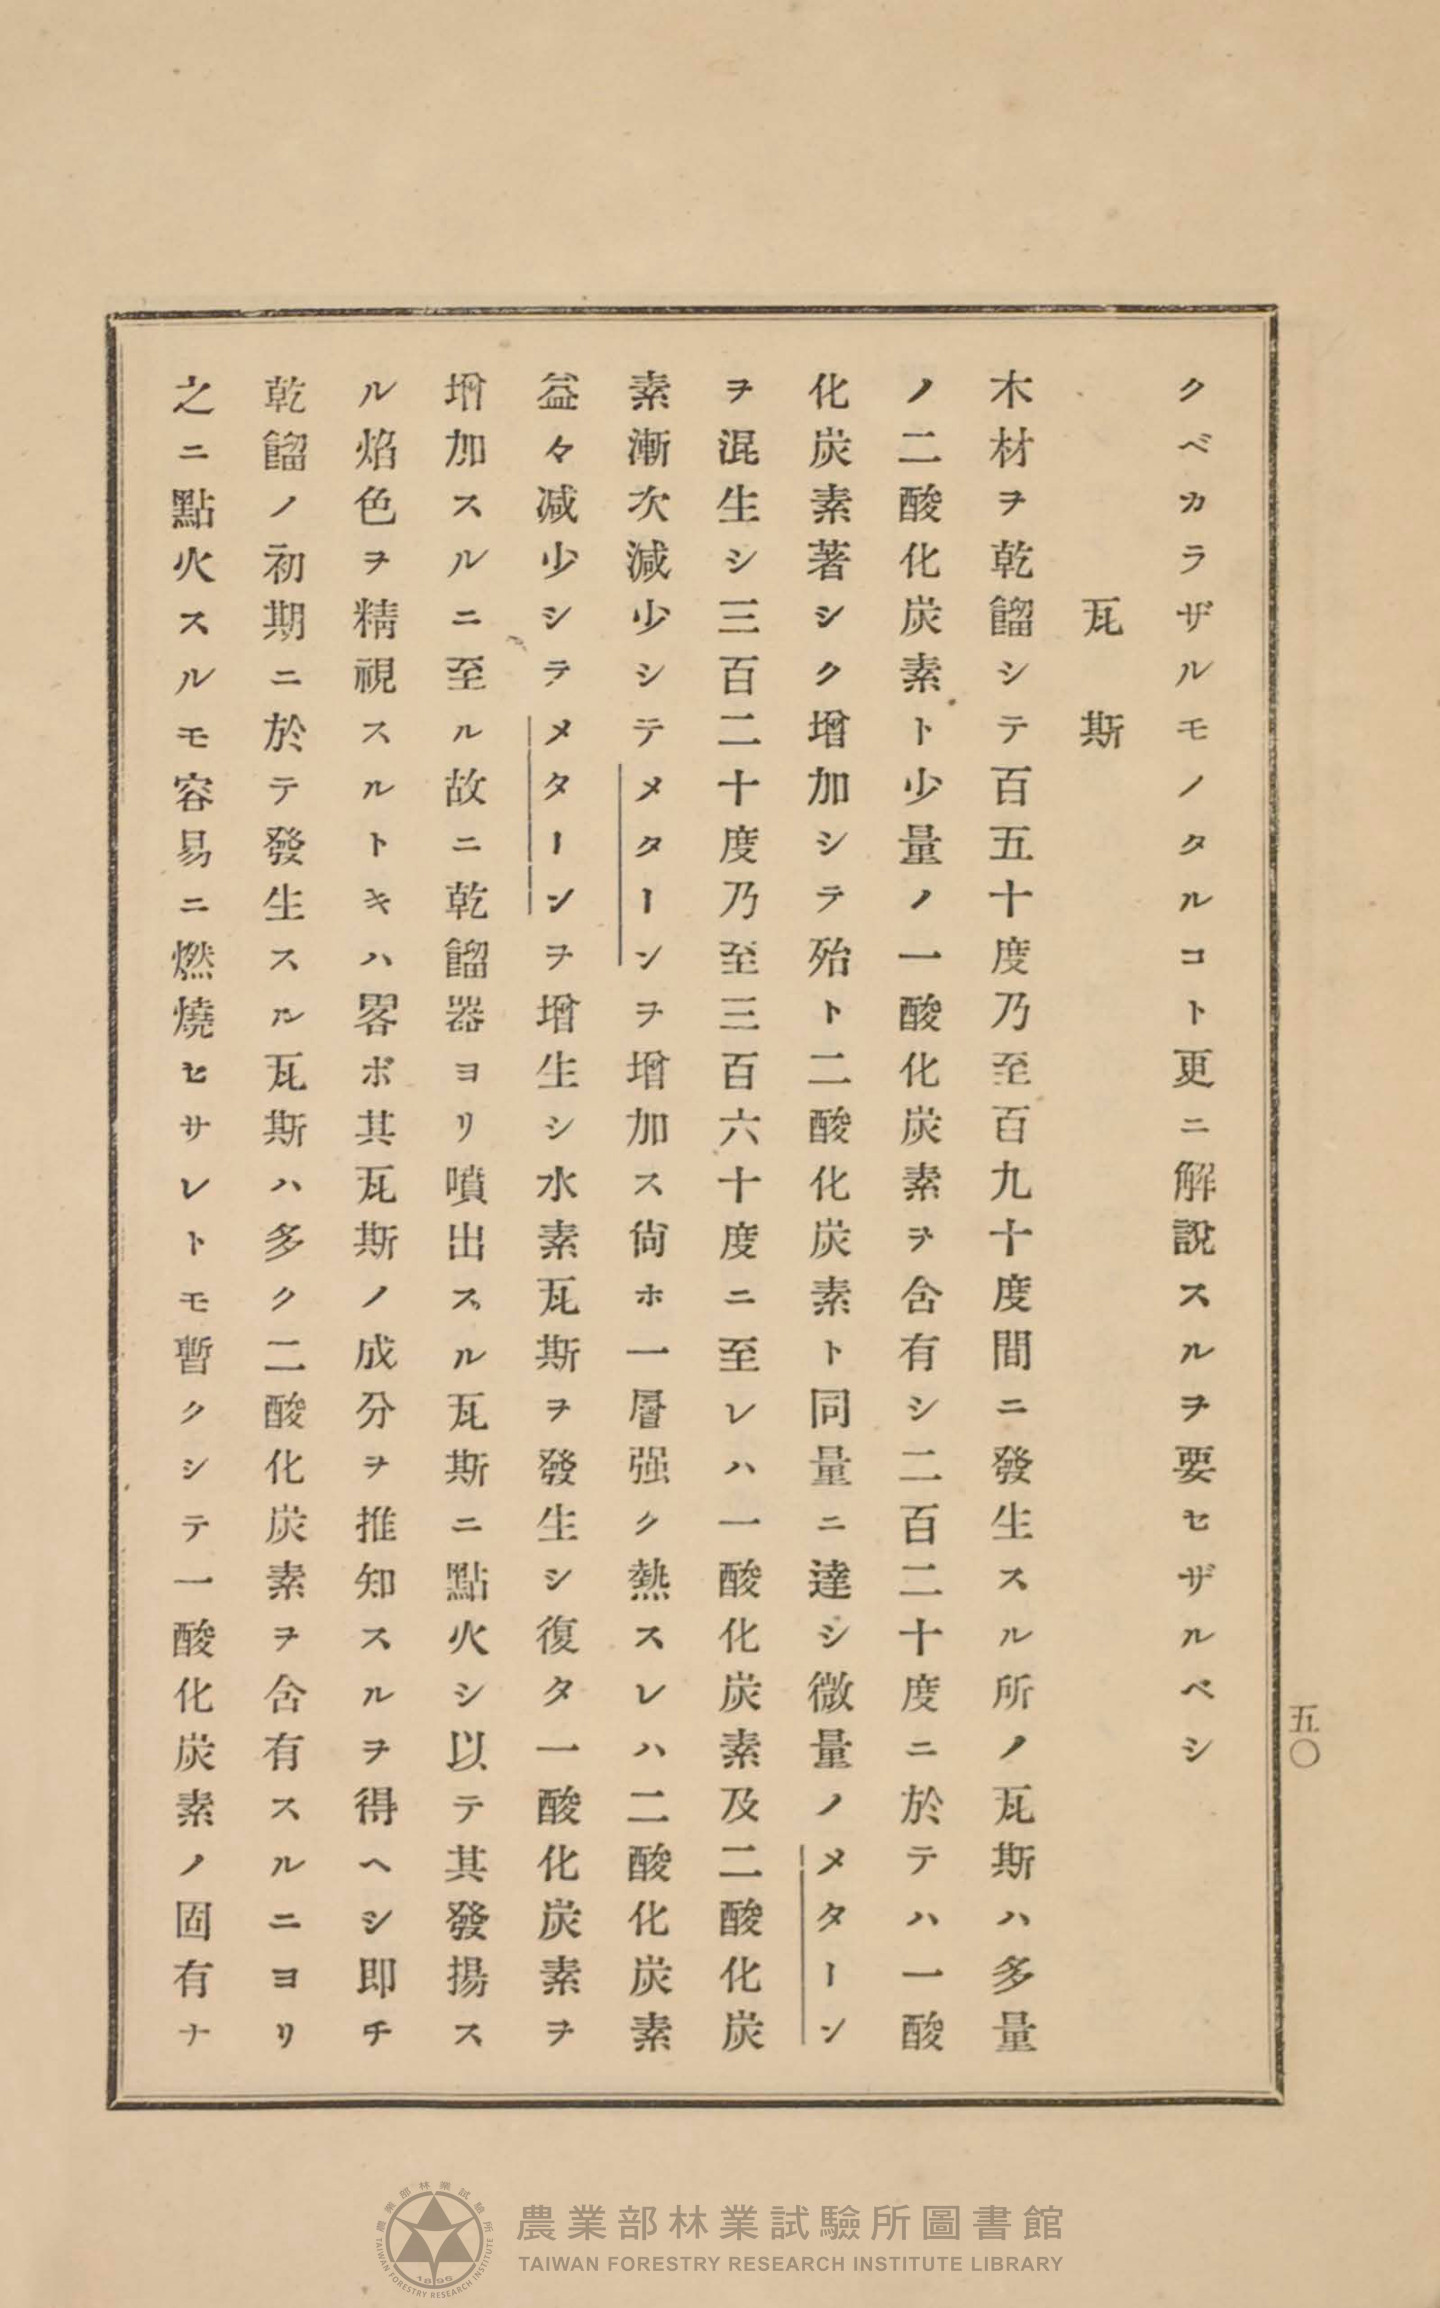 クベカラザルモノタルコト更ニ解說スルヲ要セザルベシ
瓦斯
木材ヲ乾餾シテ百五十度乃至百九十度間ニ發生スル所ノ瓦斯ハ多量
ノ二酸化炭素ト少量ノ一酸化炭素ヲ含有シ二百二十度ニ於テハ一酸
化炭素著シク增加シテ殆ト二酸化炭素ト同量ニ達シ微量ノメターン
ヲ混生シ三百二十度乃至三百六十度ニ至レハ一酸化炭素及二酸化炭
素漸次減少シテメターンヲ增加ス尙ホ一層强ク熱スレハ二酸化炭素
益々減少シテメターンヲ增生シ水素瓦斯ヲ發生シ復タ一酸化炭素ヲ
增加スルニ至ル故ニ乾餾器ヨリ噴出スル瓦斯ニ點火シ以テ其發揚ス
ル焰色ヲ精視スルトキハ畧ボ其瓦斯ノ成分ヲ推知スルヲ得ヘシ即チ
乾餾ノ初期ニ於テ發生スル瓦斯ハ多ク二酸化炭素ヲ含有スルニヨリ
之ニ點火スルモ容易ニ燃燒セサレトモ暫クシテ一酸化炭素ノ固有ナ
五〇
農業部林業試驗所圖書館
TAIWAN FORESTRY RESEARCH INSTITUTE LIBRARY
農業部林業試驗所
TAIWAN FORESTRY RESEARCH INSTITUTE
1896